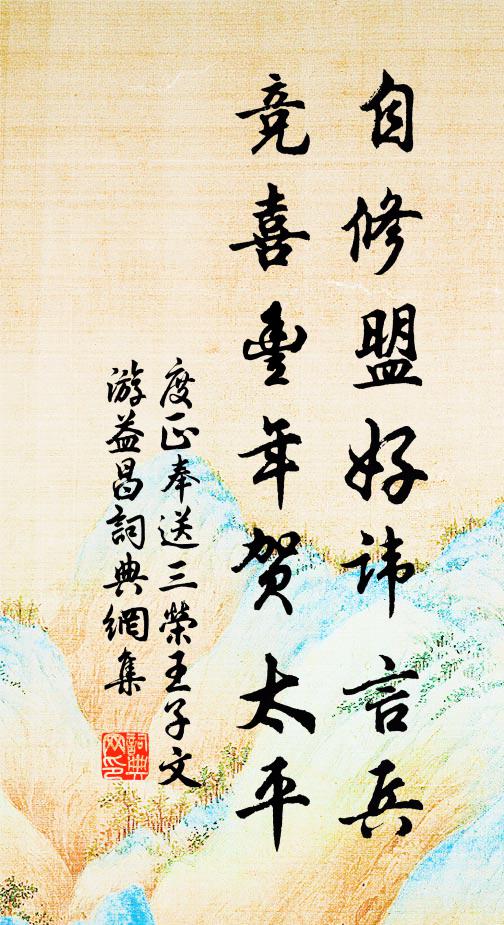 自修盟好讳言兵
竞喜豊年贺太平
度正奉送三榮王子文
游益昌詞典網集
詞典网印